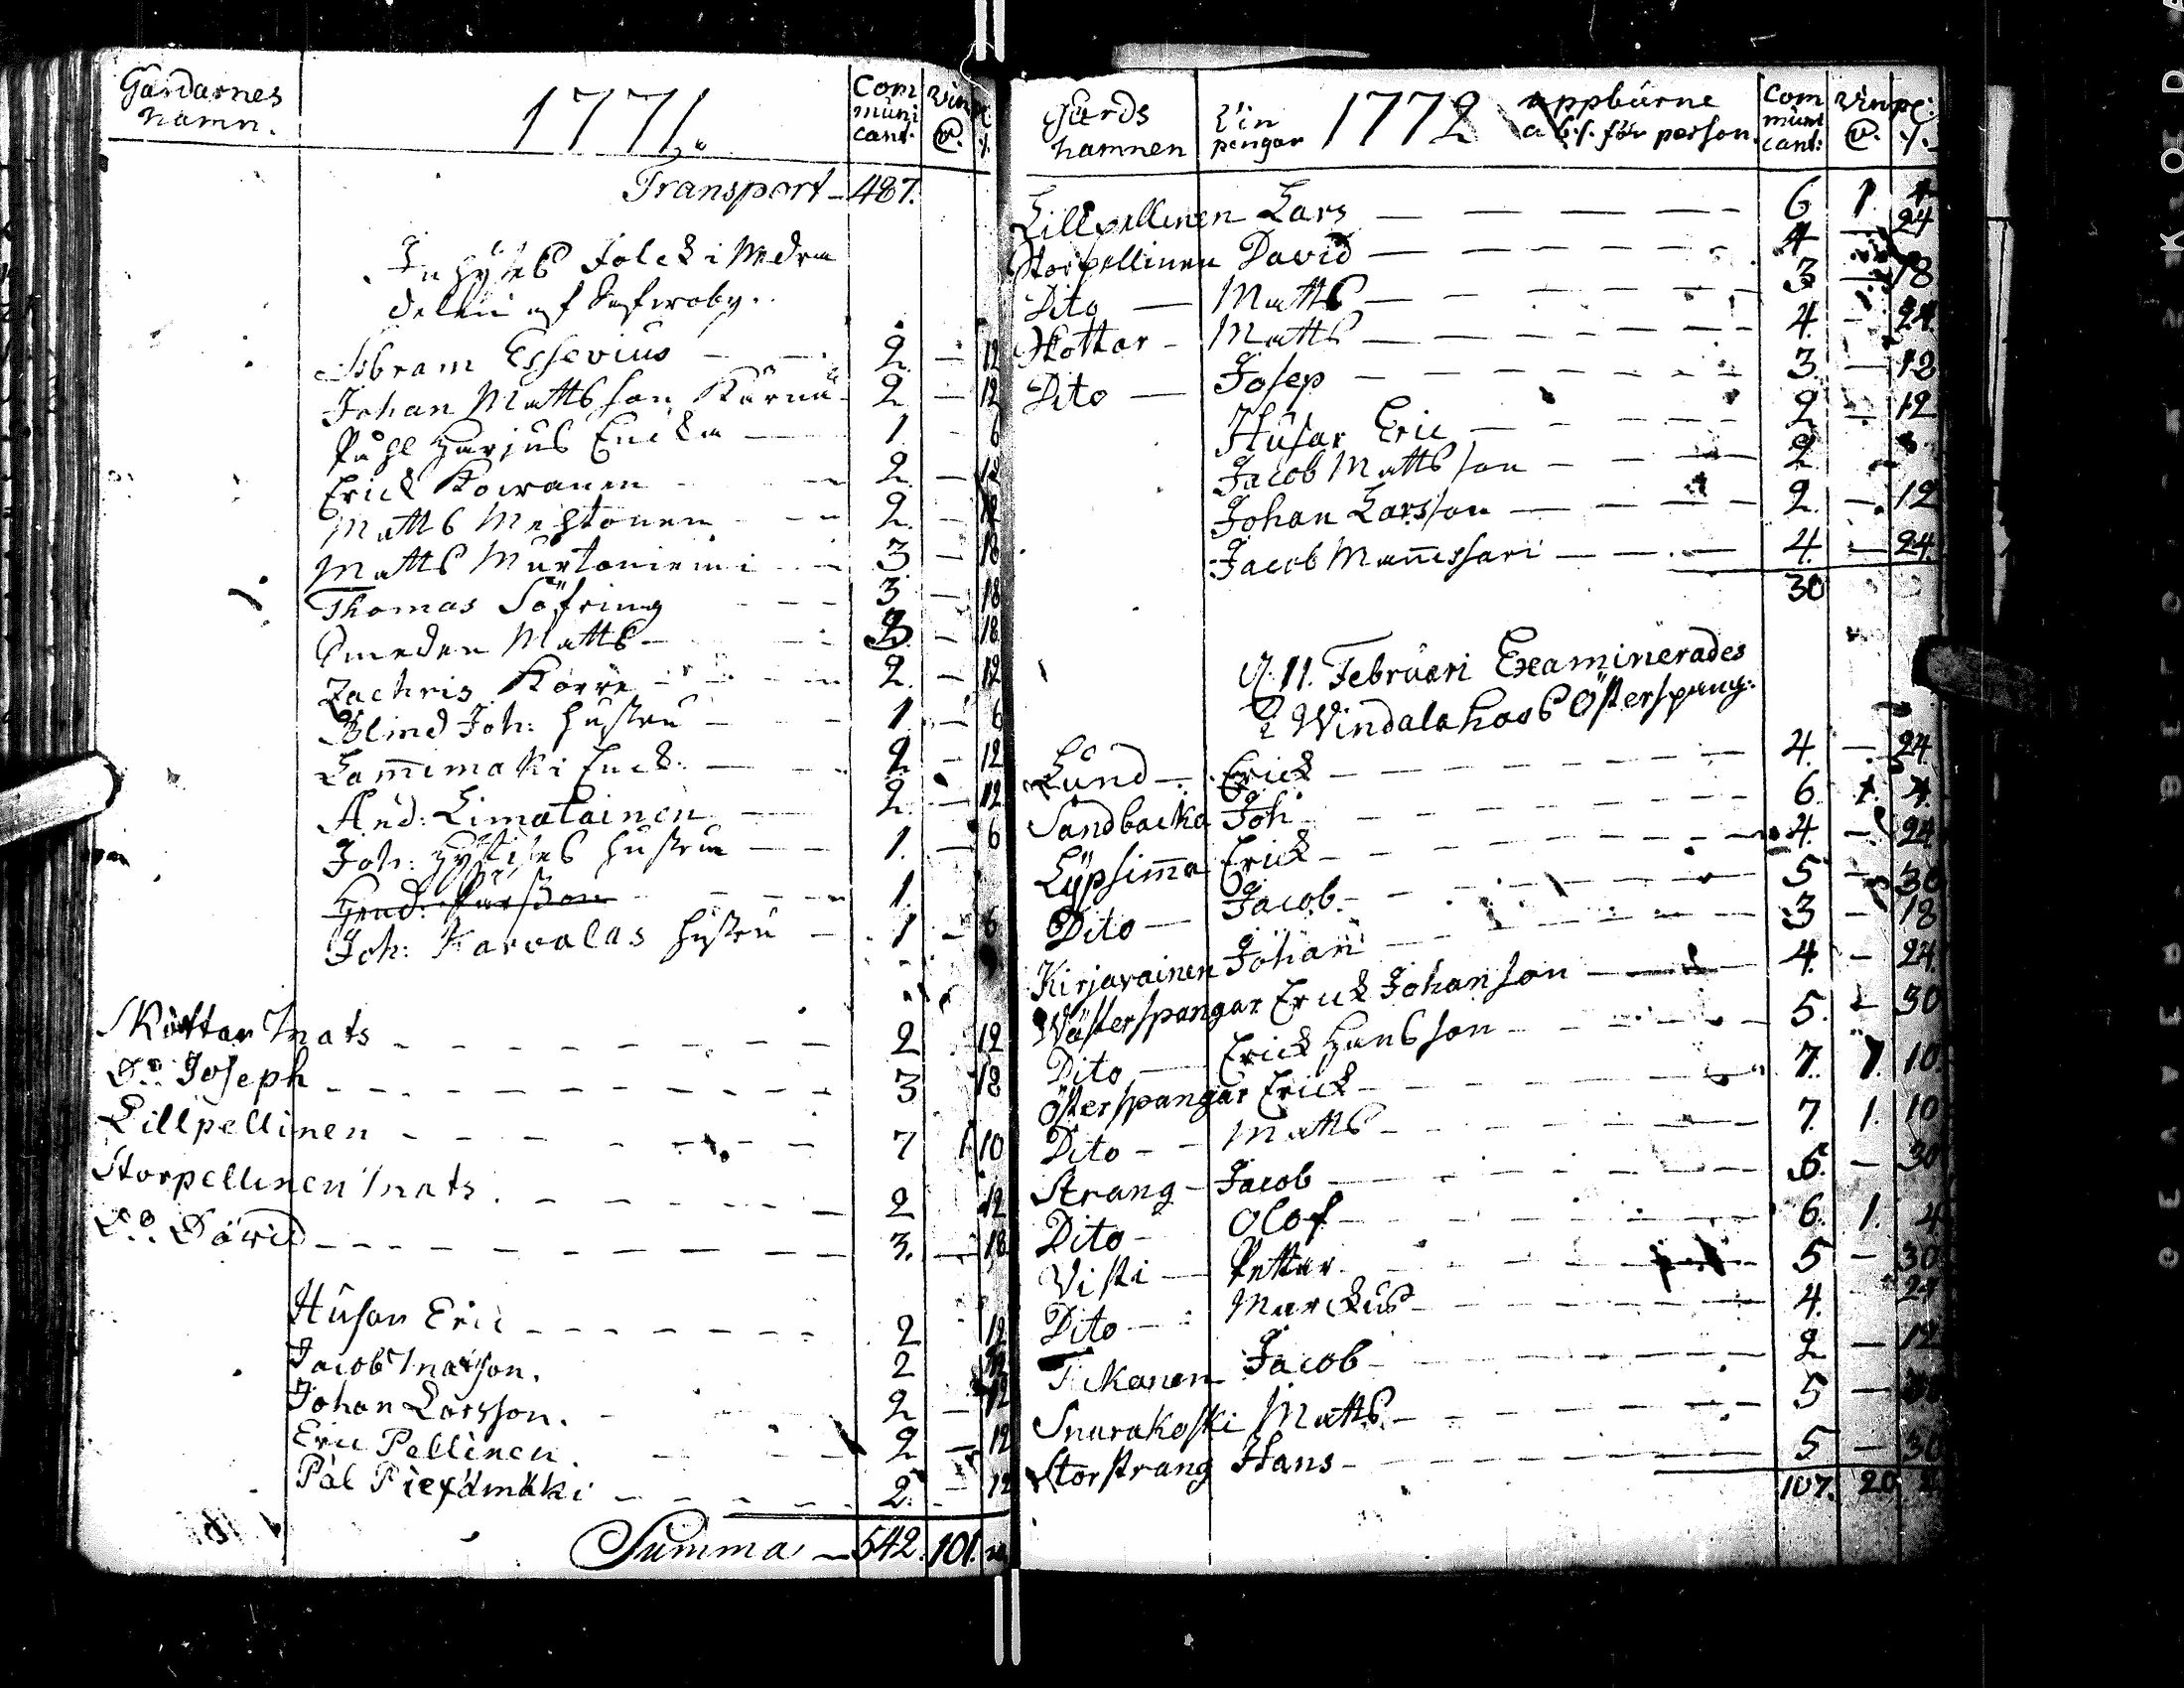 Gårdarnes namn. 1771. Communicant. Vin
Transport 487.
Inhyses Folck i Nedra
delen af
Abram Essevius 2 — 12
Johan Mattsson Kärnä 2 — 12
Påhl Harjus Encka 1 — 6
Erick Koivanen 2 — 12
Matts Mehtonen 2 — 12
Matts Murtoniemi 3 — 18
Thomas Söfring 3 — 18
Smeden Matts 3 — 18
Zachris Korre 2 — 12
Blind Joh: hustru 1 — 6
Lammimaki Enck: 2 — 12
And: Limatainen 2 — 12
Joh: hustru 1 — 6
Hend: Pärsson 1
Joh: Karvalas hustru 1 — 6
Skottar Mats 2 12
Do: Joseph 3 18
Lillpellinen 7 1 10
Storpellinen Mats 2 12
Do: David 3. — 18
Husar Eric 2 12
Jacob Matson. 2 12
Johan Larsson. 2 — 12
Eric Pellinen. 2 — 12
Pål 2. — 12
Summa 542. 101.
Gårds hamnen Vin pengar 1772 uppburne a 6 s. för person. Communicant: Vin
Lillpellinen Lars 6 1 4
Storpellinen David 4 — 24
Dito Matts 3 — 18
Skottar Matts 4 — 24
Dito Josep 3 — 18
Husar Eric 2 — 12
Jacob Mattsson 2
Johan Larsson 2 — 12
Jacob Mannessari 4 — 24
30
d. 11. Februari Examinerades
i Windala hos Österspang:
Lund Erick 4 — 24
Sandbacka Joh 6. 1. 4.
Lypsimma Erick 4 — 24
Dito Jacob 5 — 30
Kirjavainen Johan 3 — 18
Wästerspangar Erick Johansson 4. — 24.
Dito Erick Hansson 5. — 30
Österspangar Erick 7. 1. 10.
Dito Matts 7. 1. 10
Strang Jacob 5. — 30
Dito Olof 6. 1. 4
Viski Petter 5 — 30
Dito Marckus 4. 24
Jacob 2 — 12
Snarakoski Matts 5 —
Storstrang Hans 5 — 30
107. 20